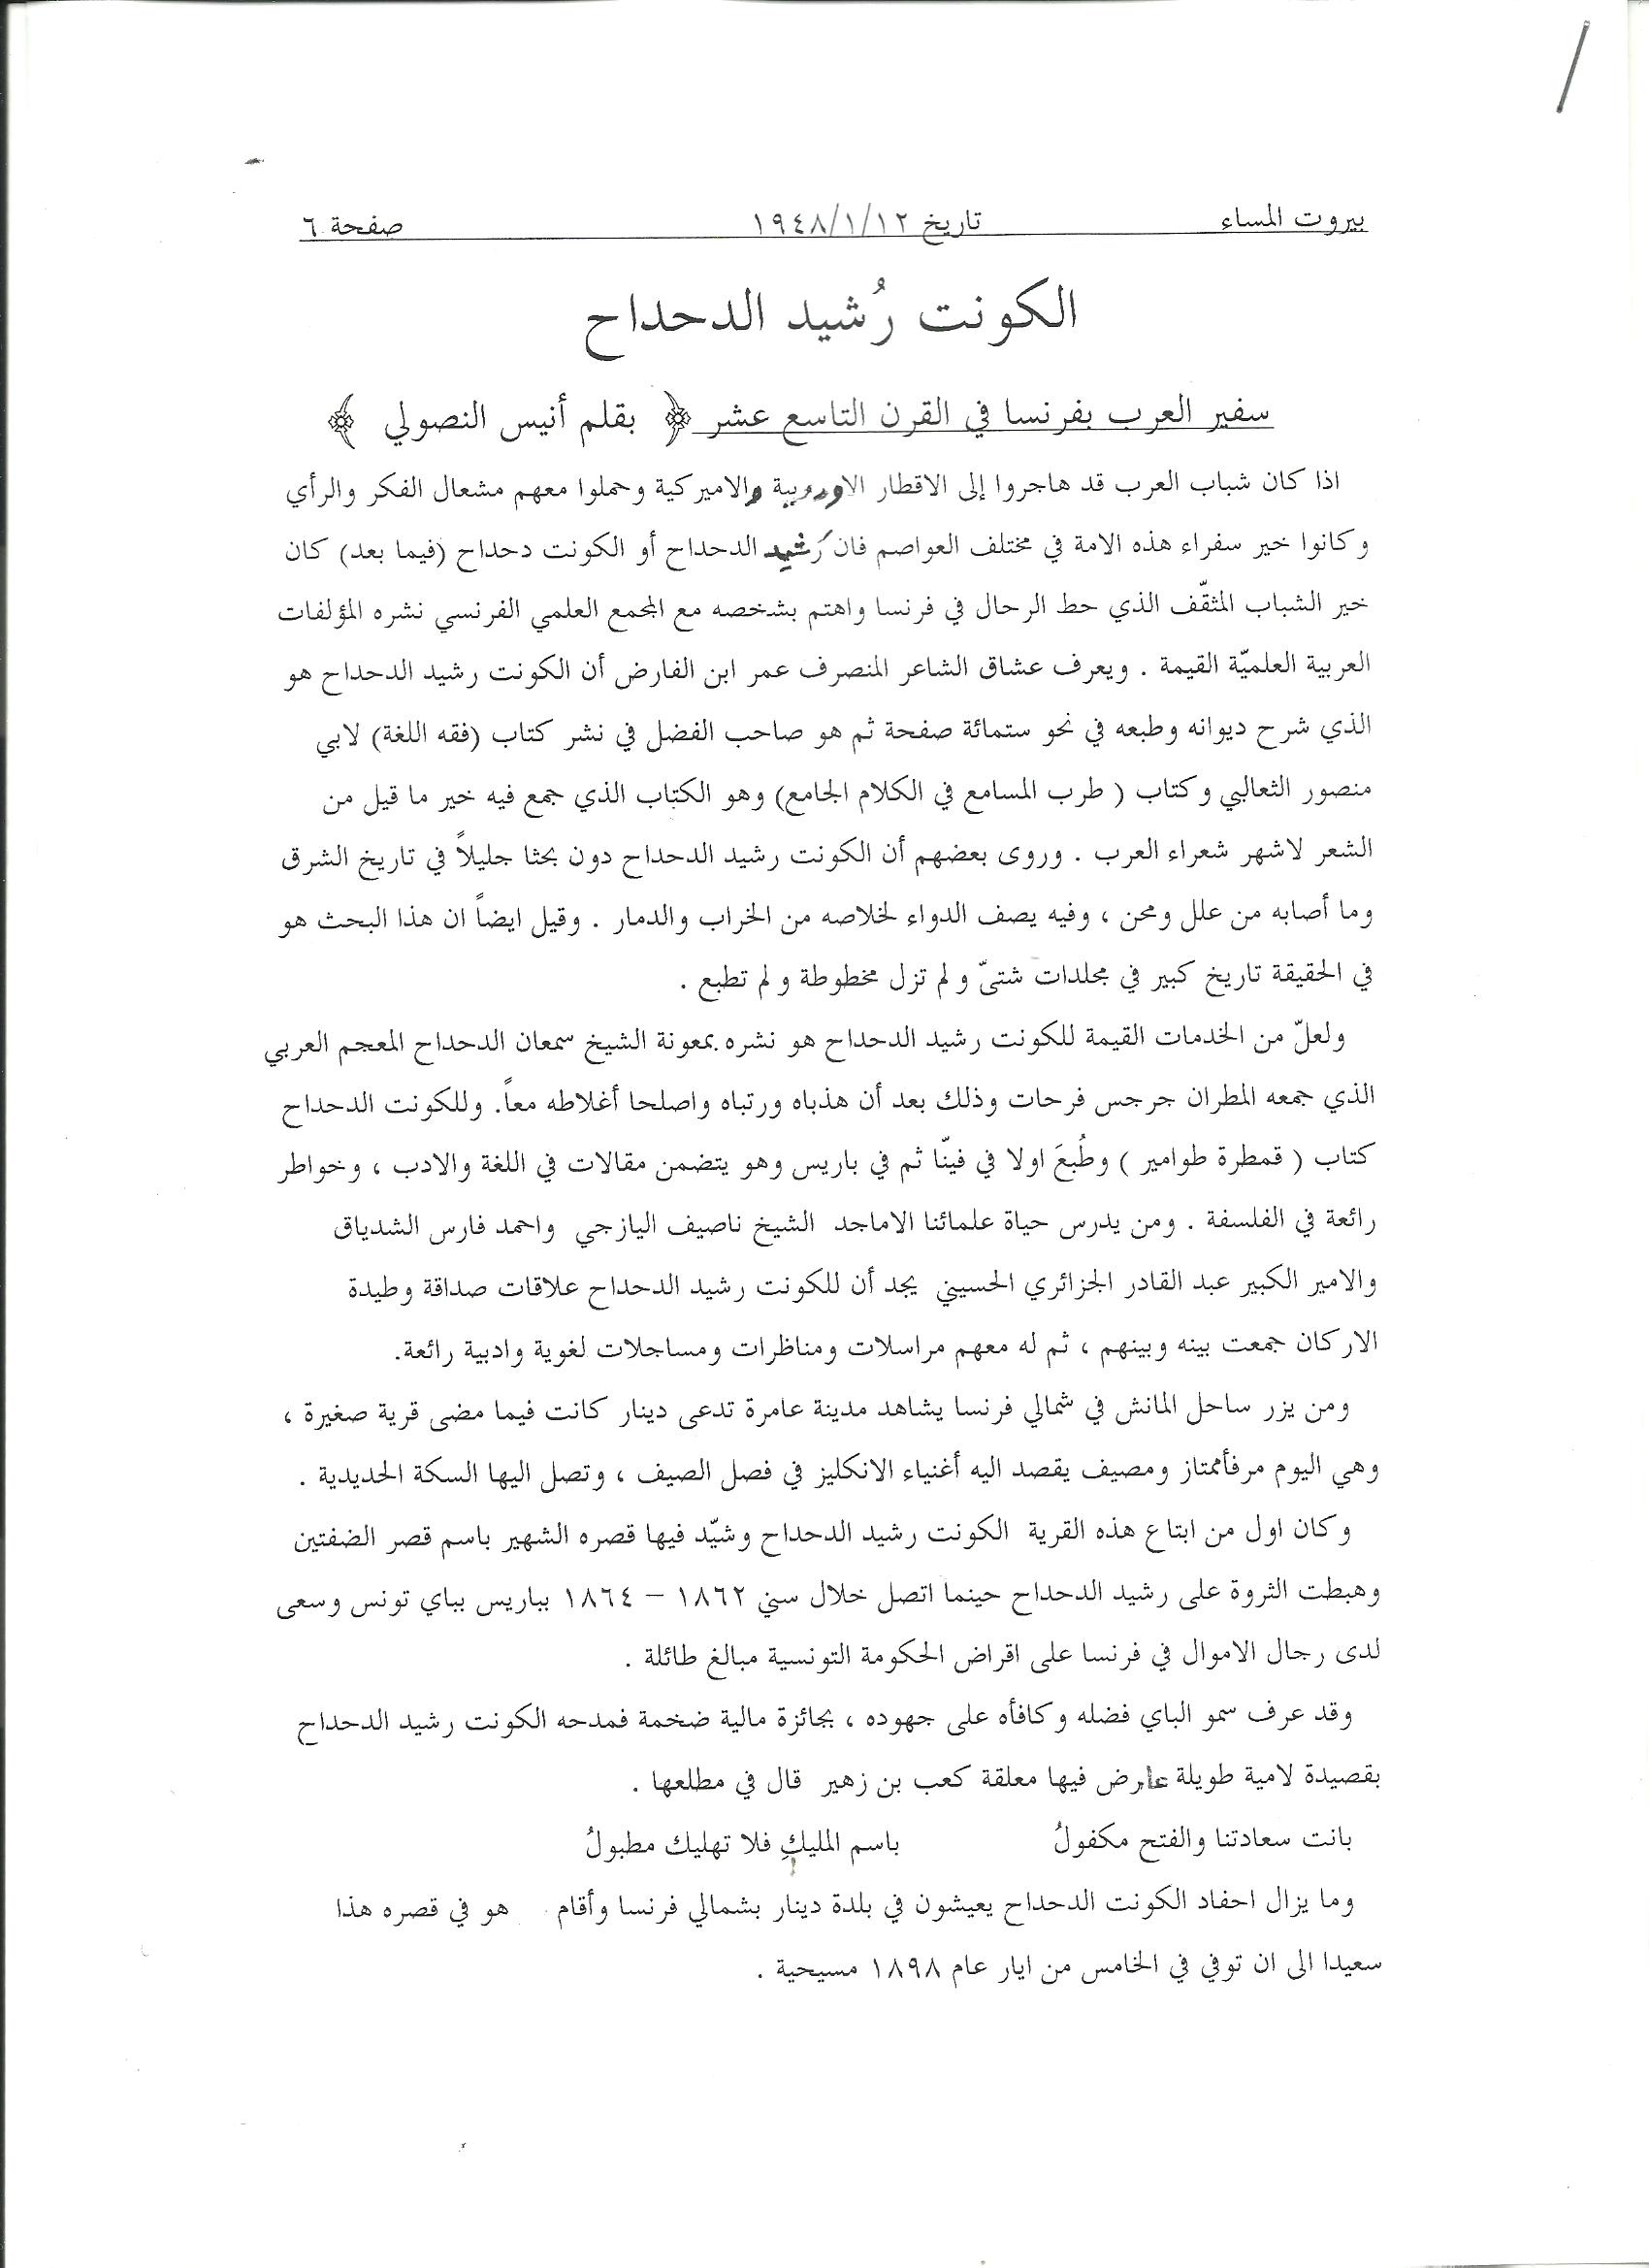 بيروت المساء تاريخ ١٩٤٨/١/١٢ صفحة ٦
الكونت رُشيد الدحداح
سفير العرب بفرنسا في القرن التاسع عشر ﴿ بقلم أنيس النصولي ﴾
اذا كان شباب العرب قد هاجروا إلى الاقطار الاوروبية والاميركية وحملوا معهم مشعال الفكر والرأي
وكانوا خير سفراء هذه الامة في مختلف العواصم فان رَشيد الدحداح أو الكونت دحداح (فيما بعد) كان
خير الشباب المثقّف الذي حط الرحال في فرنسا واهتم بشخصه مع المجمع العلمي الفرنسي نشره المؤلفات
العربية العلميّة القيمة . ويعرف عشاق الشاعر المنصرف عمر ابن الفارض أن الكونت رشيد الدحداح هو
الذي شرح ديوانه وطبعه في نحو ستمائة صفحة ثم هو صاحب الفضل في نشر كتاب (فقه اللغة) لابي
منصور الثعالبي وكتاب ( طرب المسامع في الكلام الجامع) وهو الكتاب الذي جمع فيه خير ما قيل من
الشعر لاشهر شعراء العرب . وروى بعضهم أن الكونت رشيد الدحداح دون بحثا جليلاً في تاريخ الشرق
وما أصابه من علل ومحن ، وفيه يصف الدواء لخلاصه من الخراب والدمار . وقيل ايضاً ان هذا البحث هو
في الحقيقة تاريخ كبير في مجلدات شتىّ ولم تزل مخطوطة ولم تطبع .
ولعلّ من الخدمات القيمة للكونت رشيد الدحداح هو نشره بمعونة الشيخ سمعان الدحداح المعجم العربي
الذي جمعه المطران جرجس فرحات وذلك بعد أن هذباه ورتباه واصلحا أغلاطه معاً. وللكونت الدحداح
كتاب ( قمطرة طوامير ) وطُبعَ اولا في فينّا ثم في باريس وهو يتضمن مقالات في اللغة والادب ، وخواطر
رائعة في الفلسفة . ومن يدرس حياة علمائنا الاماجد الشيخ ناصيف اليازجي واحمد فارس الشدياق
والامير الكبير عبد القادر الجزائري الحسيني يجد أن للكونت رشيد الدحداح علاقات صداقة وطيدة
الاركان جمعت بينه وبينهم ، ثم له معهم مراسلات ومناظرات ومساجلات لغوية وادبية رائعة.
ومن يزر ساحل المانش في شمالي فرنسا يشاهد مدينة عامرة تدعى دينار كانت فيما مضى قرية صغيرة ،
وهي اليوم مرفأممتاز ومصيف يقصد اليه أغنياء الانكليز في فصل الصيف ، وتصل اليها السكة الحديدية .
وكان اول من ابتاع هذه القرية الكونت رشيد الدحداح وشيّد فيها قصره الشهير باسم قصر الضفتين
وهبطت الثروة على رشيد الدحداح حينما اتصل خلال سني ١٨٦٢ – ١٨٦٤ بباريس بباي تونس وسعى
لدى رجال الاموال في فرنسا على اقراض الحكومة التونسية مبالغ طائلة .
وقد عرف سمو الباي فضله وكافأه على جهوده ، بجائزة مالية ضخمة فمدحه الكونت رشيد الدحداح
بقصيدة لامية طويلة عارض فيها معلقة كعب بن زهير قال في مطلعها .
بانت سعادتنا والفتح مكفولُ باسم المليكِ فلا تهليك مطبولُ
وما يزال احفاد الكونت الدحداح يعيشون في بلدة دينار بشمالي فرنسا وأقام هو في قصره هذا
سعيدا الى ان توفي في الخامس من ايار عام ١٨٩٨ مسيحية .